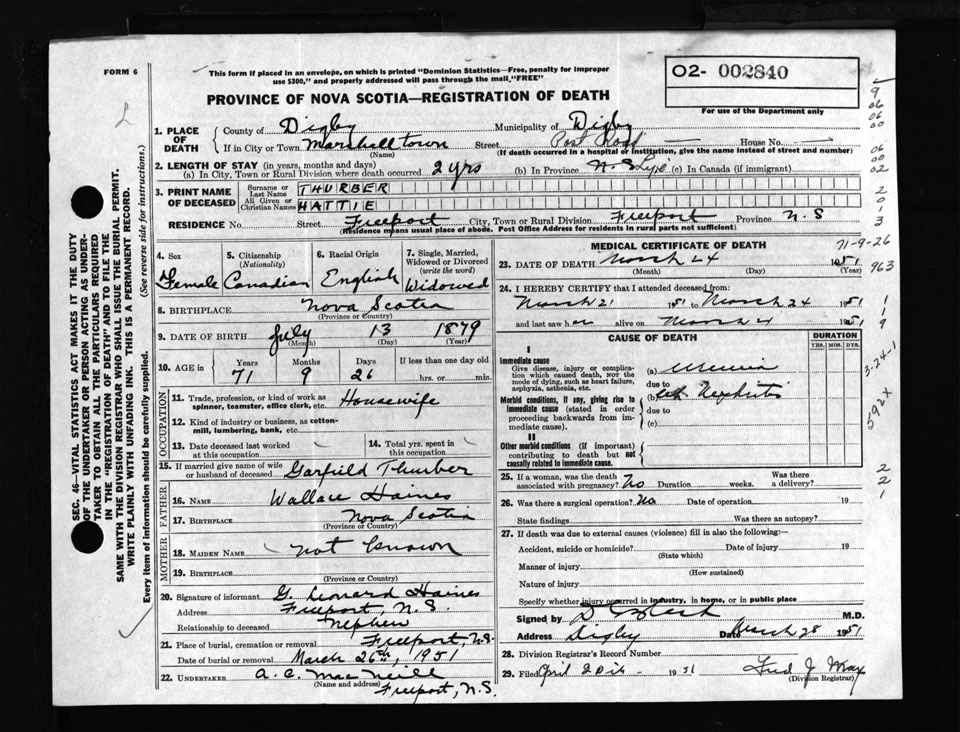 FORM 6
This form if placed in an envelope, on which is printed "Dominion Statistics—Free, penalty for improper
use $300," and properly addressed will pass through the mail "FREE"
O2- 002840
For use of the Department only
PROVINCE OF NOVA SCOTIA—REGISTRATION OF DEATH
1. PLACE OF DEATH
County of Digby Municipality of Digby
If in City or Town Marshalltown Street House No.
(Name) (If death occurred in a hospital or institution, give the name instead of street and number)
2. LENGTH OF STAY (in years, months and days)
(a) In City, Town or Rural Division where death occurred 2 yrs (b) In Province N.S. (c) In Canada (if immigrant)
3. PRINT NAME OF DECEASED
Surname or Last Name THURBER
All Given or Christian Names HATTIE
RESIDENCE No. Street Freeport City, Town or Rural Division Freeport Province N.S
(Residence means usual place of abode. Post Office Address for residents in rural parts not sufficient)
4. Sex 5. Citizenship (Nationality) 6. Racial Origin 7. Single, Married, Widowed or Divorced (write the word)
Female Canadian English Widowed
8. BIRTHPLACE Nova Scotia
(Province or Country)
9. DATE OF BIRTH July 13 1879
(Month) (Day) (Year)
10. AGE in Years Months Days If less than one day old
71 9 26 hrs. or min.
OCCUPATION
11. Trade, profession, or kind of work as spinner, teamster, office clerk, etc. Housewife
12. Kind of industry or business, as cotton-mill, lumbering, bank, etc.
13. Date deceased last worked at this occupation
14. Total yrs. spent in this occupation
15. If married give name of wife or husband of deceased Garfield Thurber
FATHER
16. NAME Wallace Haines
17. BIRTHPLACE Nova Scotia
(Province or Country)
MOTHER
18. MAIDEN NAME not known
19. BIRTHPLACE
(Province or Country)
20. Signature of informant G. Leonard Haines
Address Freeport, N.S.
Relationship to deceased Nephew
21. Place of burial, cremation or removal Freeport, N.S.
Date of burial or removal March 26th, 1951
22. UNDERTAKER A. C. MacNeill
(Name and address) Freeport, N.S.
MEDICAL CERTIFICATE OF DEATH
71-9-26
23. DATE OF DEATH March 24 1951
(Month) (Day) (Year)
963
24. I HEREBY CERTIFY that I attended deceased from:
March 21 1951 to March 24 1951
and last saw her alive on March 1951
CAUSE OF DEATH DURATION
YRS. MOS. DYS.
I
Immediate cause
Give disease, injury or complication which caused death, not the mode of dying, such as heart failure, asphyxia, asthenia, etc.
(a) Uremia
due to
Morbid conditions, if any, giving rise to immediate cause (stated in order proceeding backwards from immediate cause).
(b) Nephritis
due to
(c)
II
Other morbid conditions (if important) contributing to death but not causally related to immediate cause.
3-24-1
592X
25. If a woman, was the death associated with pregnancy? No Duration weeks. Was there a delivery?
26. Was there a surgical operation? No Date of operation 19
State findings Was there an autopsy?
27. If death was due to external causes (violence) fill in also the following:—
Accident, suicide or homicide? Date of injury 19
(State which)
Manner of injury
(How sustained)
Nature of injury
Specify whether injury occurred in industry, in home, or in public place
Signed by M.D.
Address Digby Date March 28 1951
28. Division Registrar's Record Number
29. Filed April 1951 Fred J.
(Division Registrar)
SEC. 46—VITAL STATISTICS ACT MAKES IT THE DUTY
OF THE UNDERTAKER OR PERSON ACTING AS UNDER-
TAKER TO OBTAIN ALL THE PARTICULARS REQUIRED
IN THE "REGISTRATION OF DEATH" AND TO FILE THE
SAME WITH THE DIVISION REGISTRAR WHO SHALL ISSUE THE BURIAL PERMIT.
WRITE PLAINLY WITH UNFADING INK. THIS IS A PERMANENT RECORD.
Every item of information should be carefully supplied. (See reverse side for instructions.)